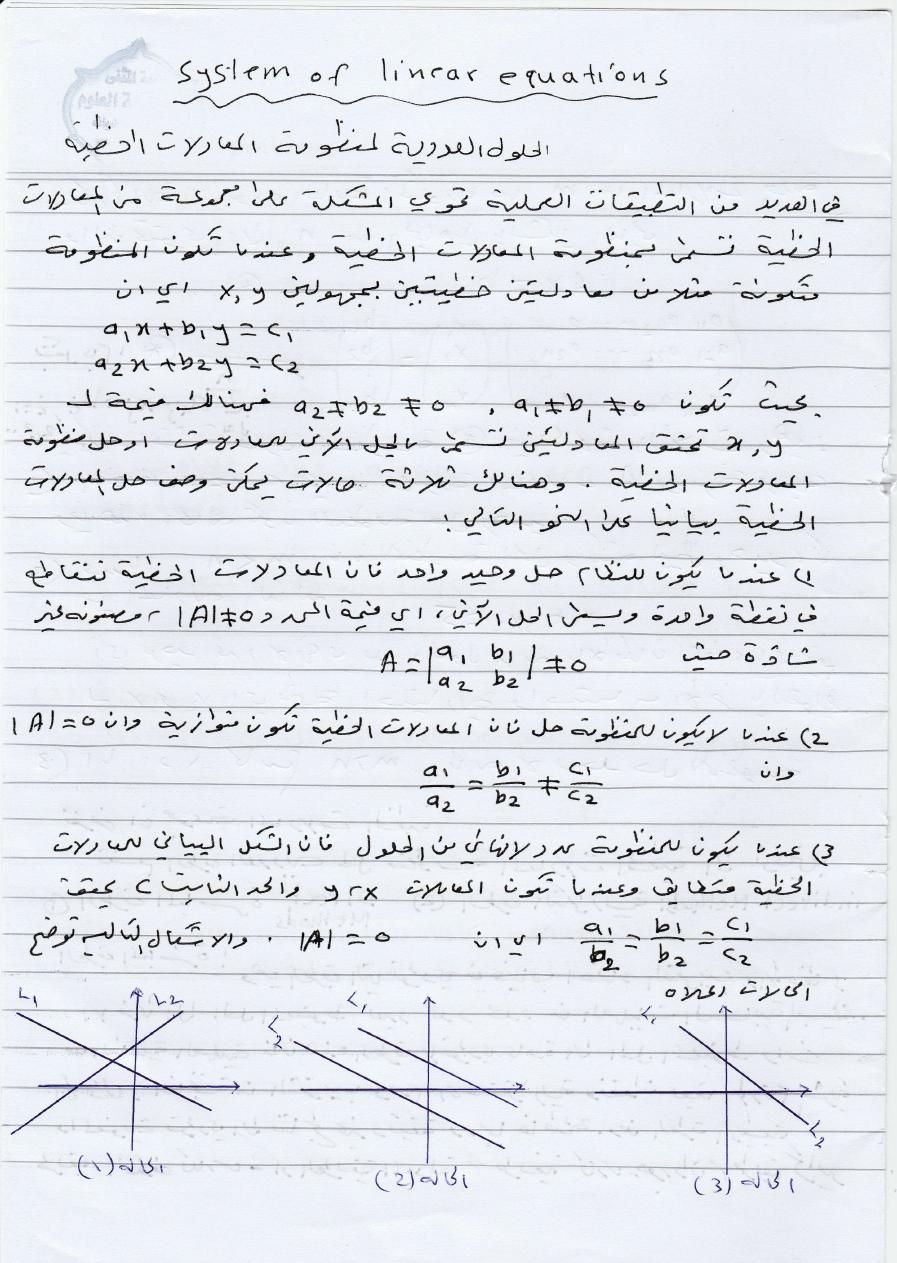 system of linear equations
الحلول العددية لمنظومة المعادلات الخطية
في العديد من التطبيقات العملية تحوي المشكلة على مجموعة من المعادلات
الخطية تسمى بمنظومة المعادلات الخطية وعندما تكون المنظومة
متكونة مثلا من معادلتين خطيتين بمجهولين x, y اي ان
a₁x + b₁y = c₁
a₂x + b₂y = c₂
بحيث تكون a₁ ≠ b₁ ≠ 0 , a₂ ≠ b₂ ≠ 0 فهنالك قيمة لـ
x, y تحقق المعادلتين تسمى بالحل الآني للمعادلات او حل منظومة
المعادلات الخطية . وهنالك ثلاثة حالات يمكن وصف حل المعادلات
الخطية بيانيا على النحو التالي :
1) عندما يكون للنظام حل وحيد واحد فان المعادلات الخطية تتقاطع
في نقطة واحدة ويسمى الحل الآني ، اي قيمة المحدد |A| ≠ 0 ، مصفوفه غير
شاذة حيث A = |a₁ b₁ a₂ b₂| ≠ 0
2) عندما لا يكون للمنظومة حل فان المعادلات الخطية تكون متوازية وان |A| = 0
وان a₁/a₂ = b₁/b₂ ≠ c₁/c₂
3) عندما يكون للمنظومة عدد لانهائي من الحلول فان الشكل البياني للمعادلات
الخطية متطابق وعندما تكون المعاملات x ، y والحد الثابت c يحقق
a₁/b₂ = b₁/b₂ = c₁/c₂ اي ان |A| = 0 . والاشكال التاليه توضح
الحالات اعلاه
L₁ L₂
L₁ L₂
L₁ L₂
الحاله (1)
الحاله (2)
الحاله (3)